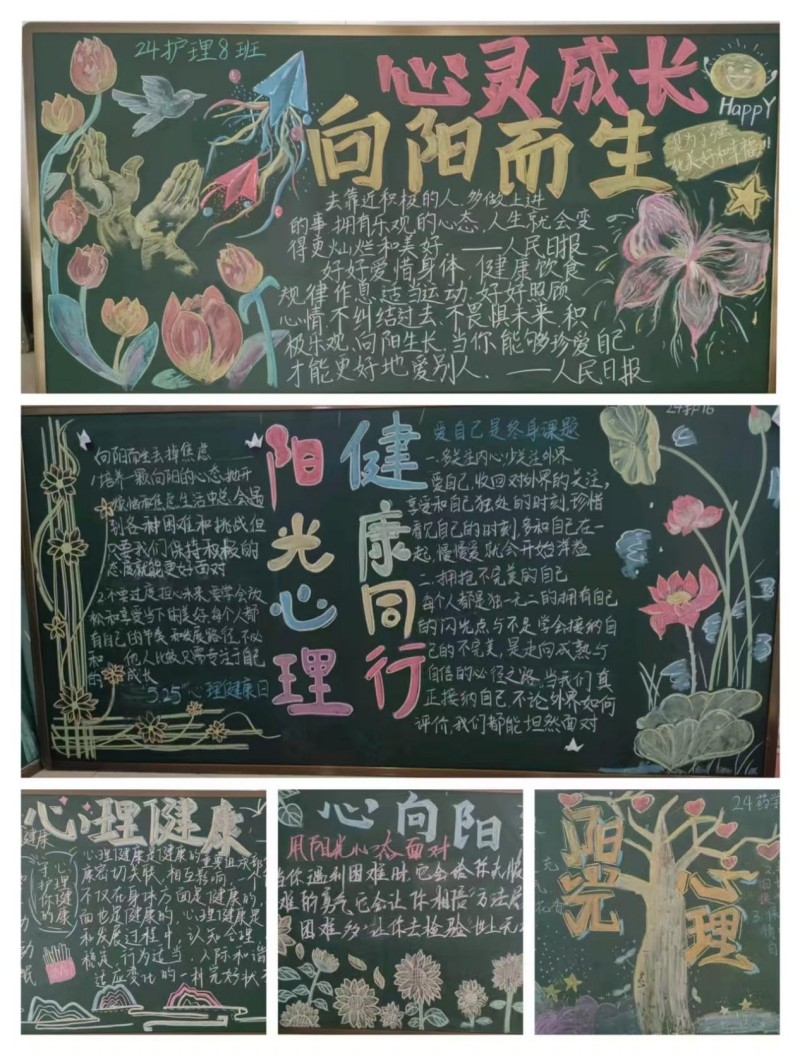 24护理8班
心灵成长
向阳而生
HAPPY
去靠近积极的人,多做上进
的事,拥有乐观的心态,人生就会变
得更灿烂和美好 ——人民日报
好好爱惜身体,健康饮食
规律作息,适当运动,好好照顾
心情 不纠结过去,不畏惧未来,积
极乐观,向阳生长,当你能够珍爱自己
才能更好地爱别人. ——人民日报
向阳而生去掉焦虑
1培养一颗向阳的心态抛开
烦恼和焦虑生活中总会遇
到各种困难和挑战但
只要我们保持积极的
态度就能更好面对
2不要过度担心未来,要学会放
松和享受当下的美好,每个人都
有自己的节奏和发展路径,不必
和 他人比较只需专注于自己
的 成长
5.25 心理健康日
阳光心理
健康同行
爱自己是终身课题
一.多关注内心,少关注外界
爱自己,收回对外界的关注,
享受和自己独处的时刻,珍惜
看见自己的时刻,多和自己在一
起,慢慢爱就会开始洋溢
二.拥抱不完美的自己
每个人都是独一无二的拥有自己
的闪光点与不足学会接纳自
己的不完美,是走向成熟与
自信的必经之路,当我们真
正接纳自己,不论外界如何
评价,我们都能坦然面对
24护16
心理健康
健康
守心
护理
你健
的康
心理健康是健康的重要组成部
康密切关联,相互影响,一个
不仅在身体方面是健康的,
面也是健康的,心理健康是
和发展过程中,认知合理
稳定,行为适当,人际和谐
适应变化的一种完好状
心向阳
用阳光心态面对
当你遇到困难时,它会给你克服
难的勇气,它会让你相信"方法总
困难多,让你去检验
24药学
阳光
心理